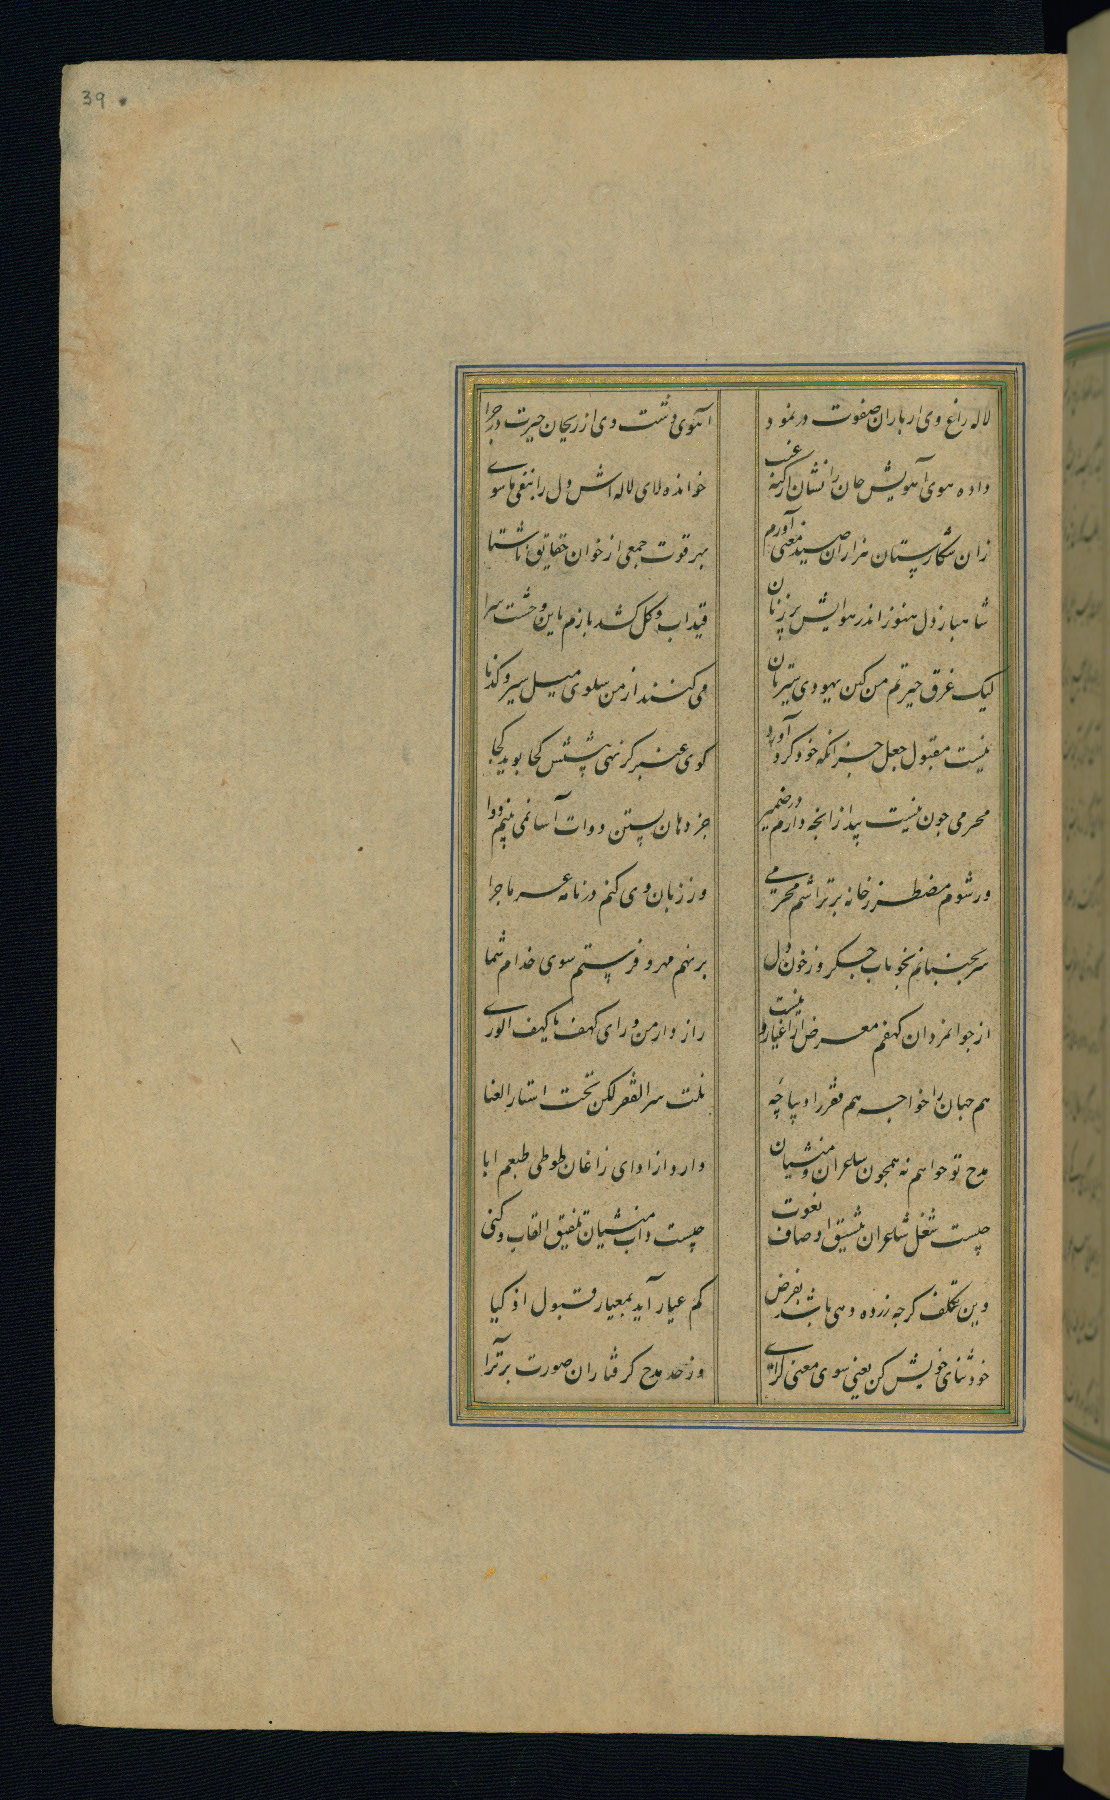 39
لاله راغ وی از باران صفوت در نمود
آهوی دشت وی از ریحان حیرت در چرا
داده هوی آهویش جان را نشان از کنه غیب
خوانده لای لاله اش دل را بنفی ماسوی
زان شکارستان هزاران صید معنی آورم
بهر قوت جمعی از خوان حقایق ناشتا
شاهباز دل هنوز اندر هوایش پر زنان
قید آب و گل کشد بازم باین وحشت سرا
لیک غرق حیرتم من کین یهودی سیرتان
می کنند از من سلوی میل سیر و گندنا
نیست مقبول جعل جز آنکه خود گرد آورد
گوی عنبر گر نهی پیشش کجا بوید کجا
محرمی چون نیست پیدا زانچه دارم در ضمیر
جز دهان بستن دوات آسا نمی بینم دوا
ور شوم مضطر ز خامه بر تراشم محرمی
وز زبان وی کنم در نامه عرض ماجرا
سر بجنبانم بخوناب جگر وز خون دل
بر نهم مهر و فرستم سوی خدام شما
از جوانمردان کهفم معرض از اغیار نیست
رازدار من ورای کهف ما کهف الوری
هم جهان را خواجه هم فقر را دیباچه
نلت سر الفقر لکن تحت استار الغنا
مدح تو خواهم نه همچون شاعران و منشیان
دارد از ادای زاغان طوطی طبعم ابا
چیست شغل شاعران تنسیق اوصاف نعوت
چیست داب منشیان تلفیق القاب و کنی
وین تکلف گرچه زر ده دهی باشد بفرض
کم عیار آید بمعیار قبول اذکیا
خود ثنای خویش کن یعنی سوی معنی گرای
وز حد مدح گرفتاران صورت برتر آ